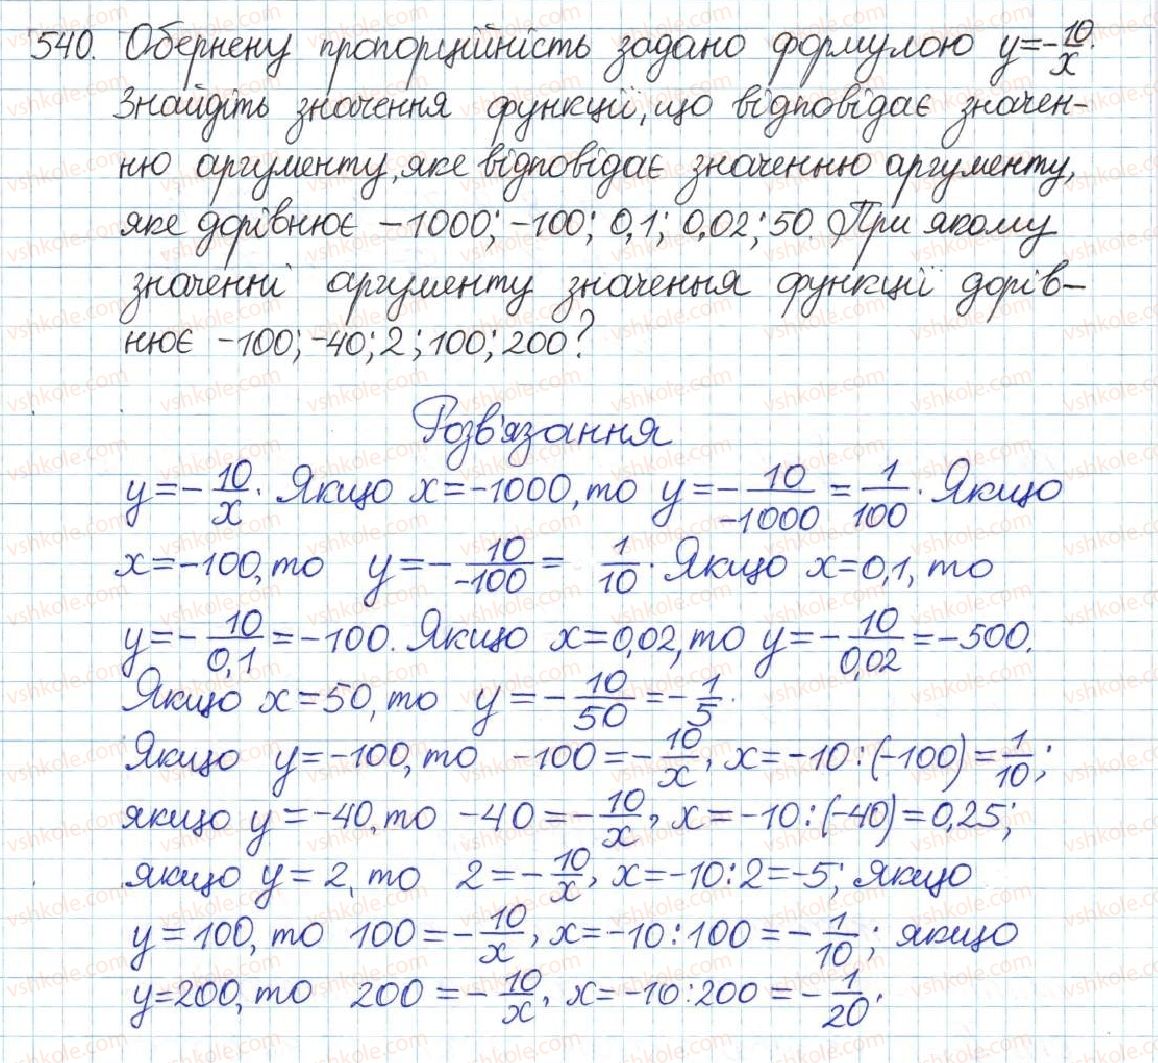 540. Обернену пропорційність задано формулою y=-10/x.
Знайдіть значення функції, що відповідає значен-
ню аргументу, яке відповідає значенню аргументу,
яке дорівнює -1000; -100; 0,1; 0,02; 50. При якому
значенні аргументу значення функції дорів-
нює -100; -40; 2; 100; 200?
Розв'язання
y=-10/x. Якщо x=-1000, то y=-10/-1000=1/100. Якщо
x=-100, то y=-10/-100= 1/10. Якщо x=0,1, то
y=-10/0,1=-100. Якщо x=0,02, то y=-10/0,02=-500.
Якщо x=50, то y=-10/50=-1/5.
Якщо y=-100, то -100=-10/x, x=-10:(-100)=1/10;
якщо y=-40, то -40=-10/x, x=-10:(-40)=0,25;
якщо y=2, то 2=-10/x, x=-10:2=-5; якщо
y=100, то 100=-10/x, x=-10:100=-1/10; якщо
y=200, то 200=-10/x, x=-10:200=-1/20.